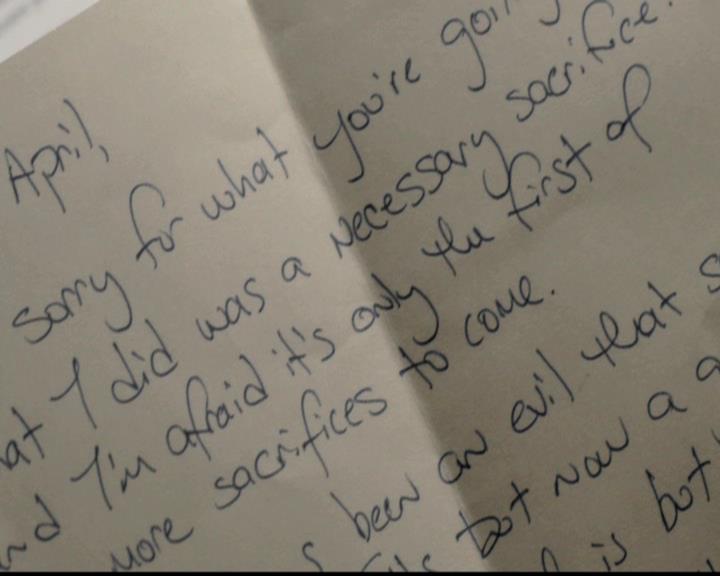 April,
sorry for what you're
at I did was a necessary sacrifice.
nd I'm afraid it's only the first of
more sacrifices to come.
been an evil that s
but now a
is but